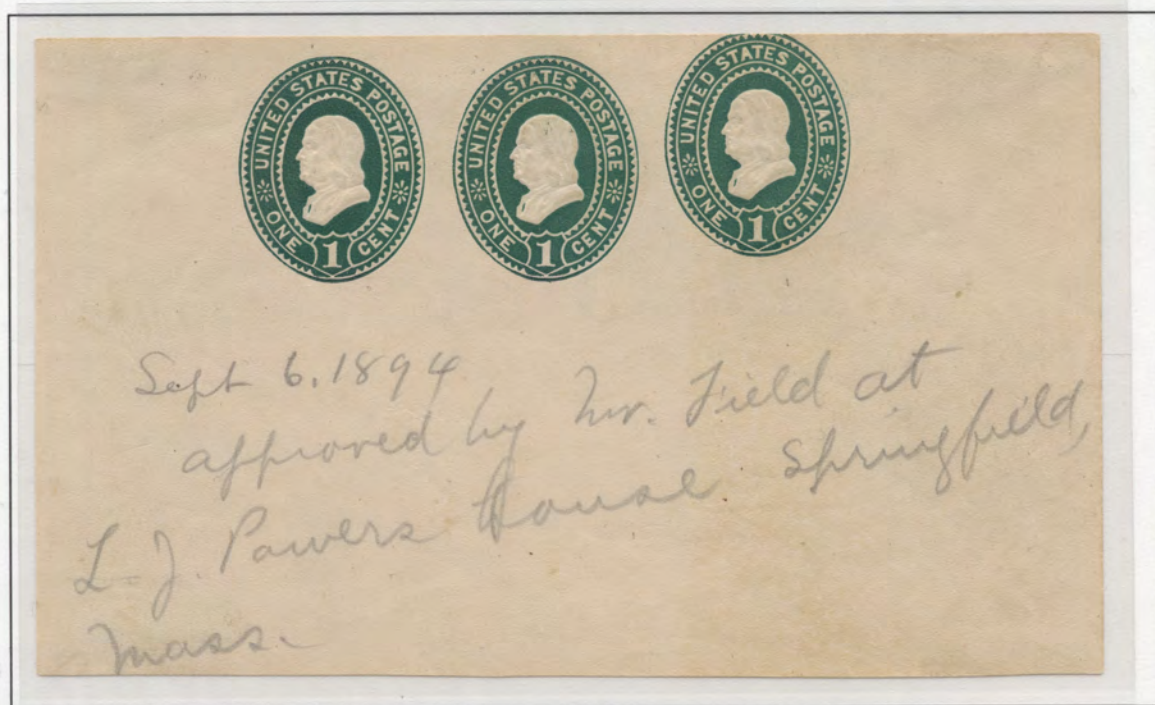 UNITED STATES POSTAGE
ONE 1 CENT
UNITED STATES POSTAGE
ONE 1 CENT
UNITED STATES POSTAGE
ONE 1 CENT
Sept 6. 1894
approved by Mr. Field at
L. J. Powers House Springfield,
Mass.